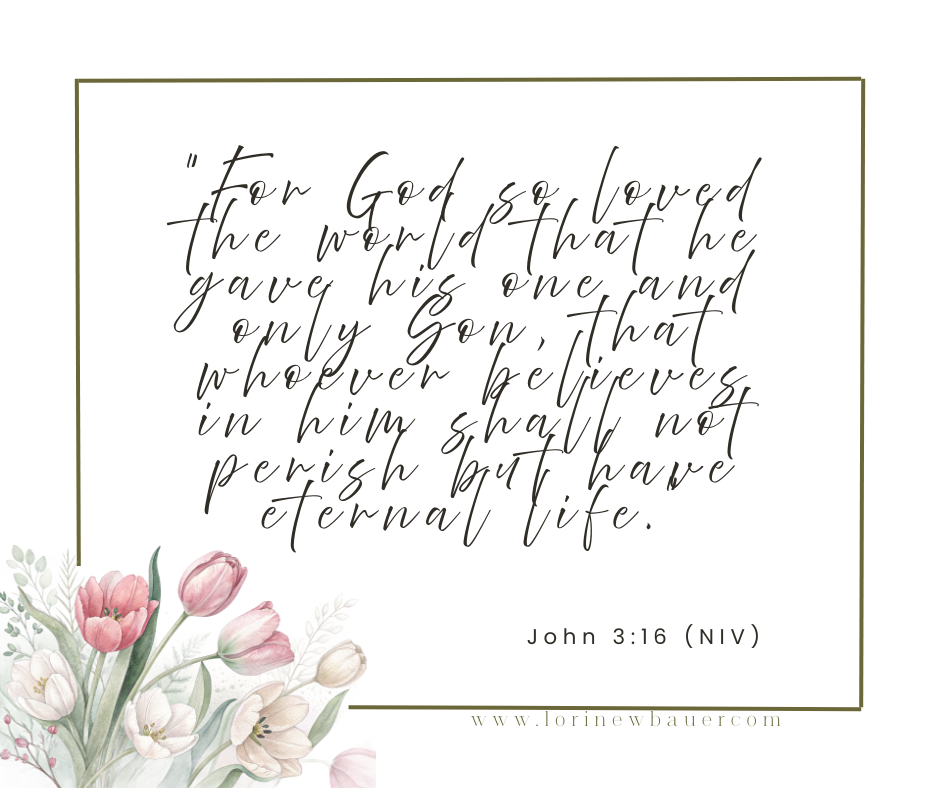 "For God so loved
the world that he
gave his one and
only Son, that
whoever believes
in him shall not
perish but have
eternal life."
John 3:16 (NIV)
www.lorinewbauer.com